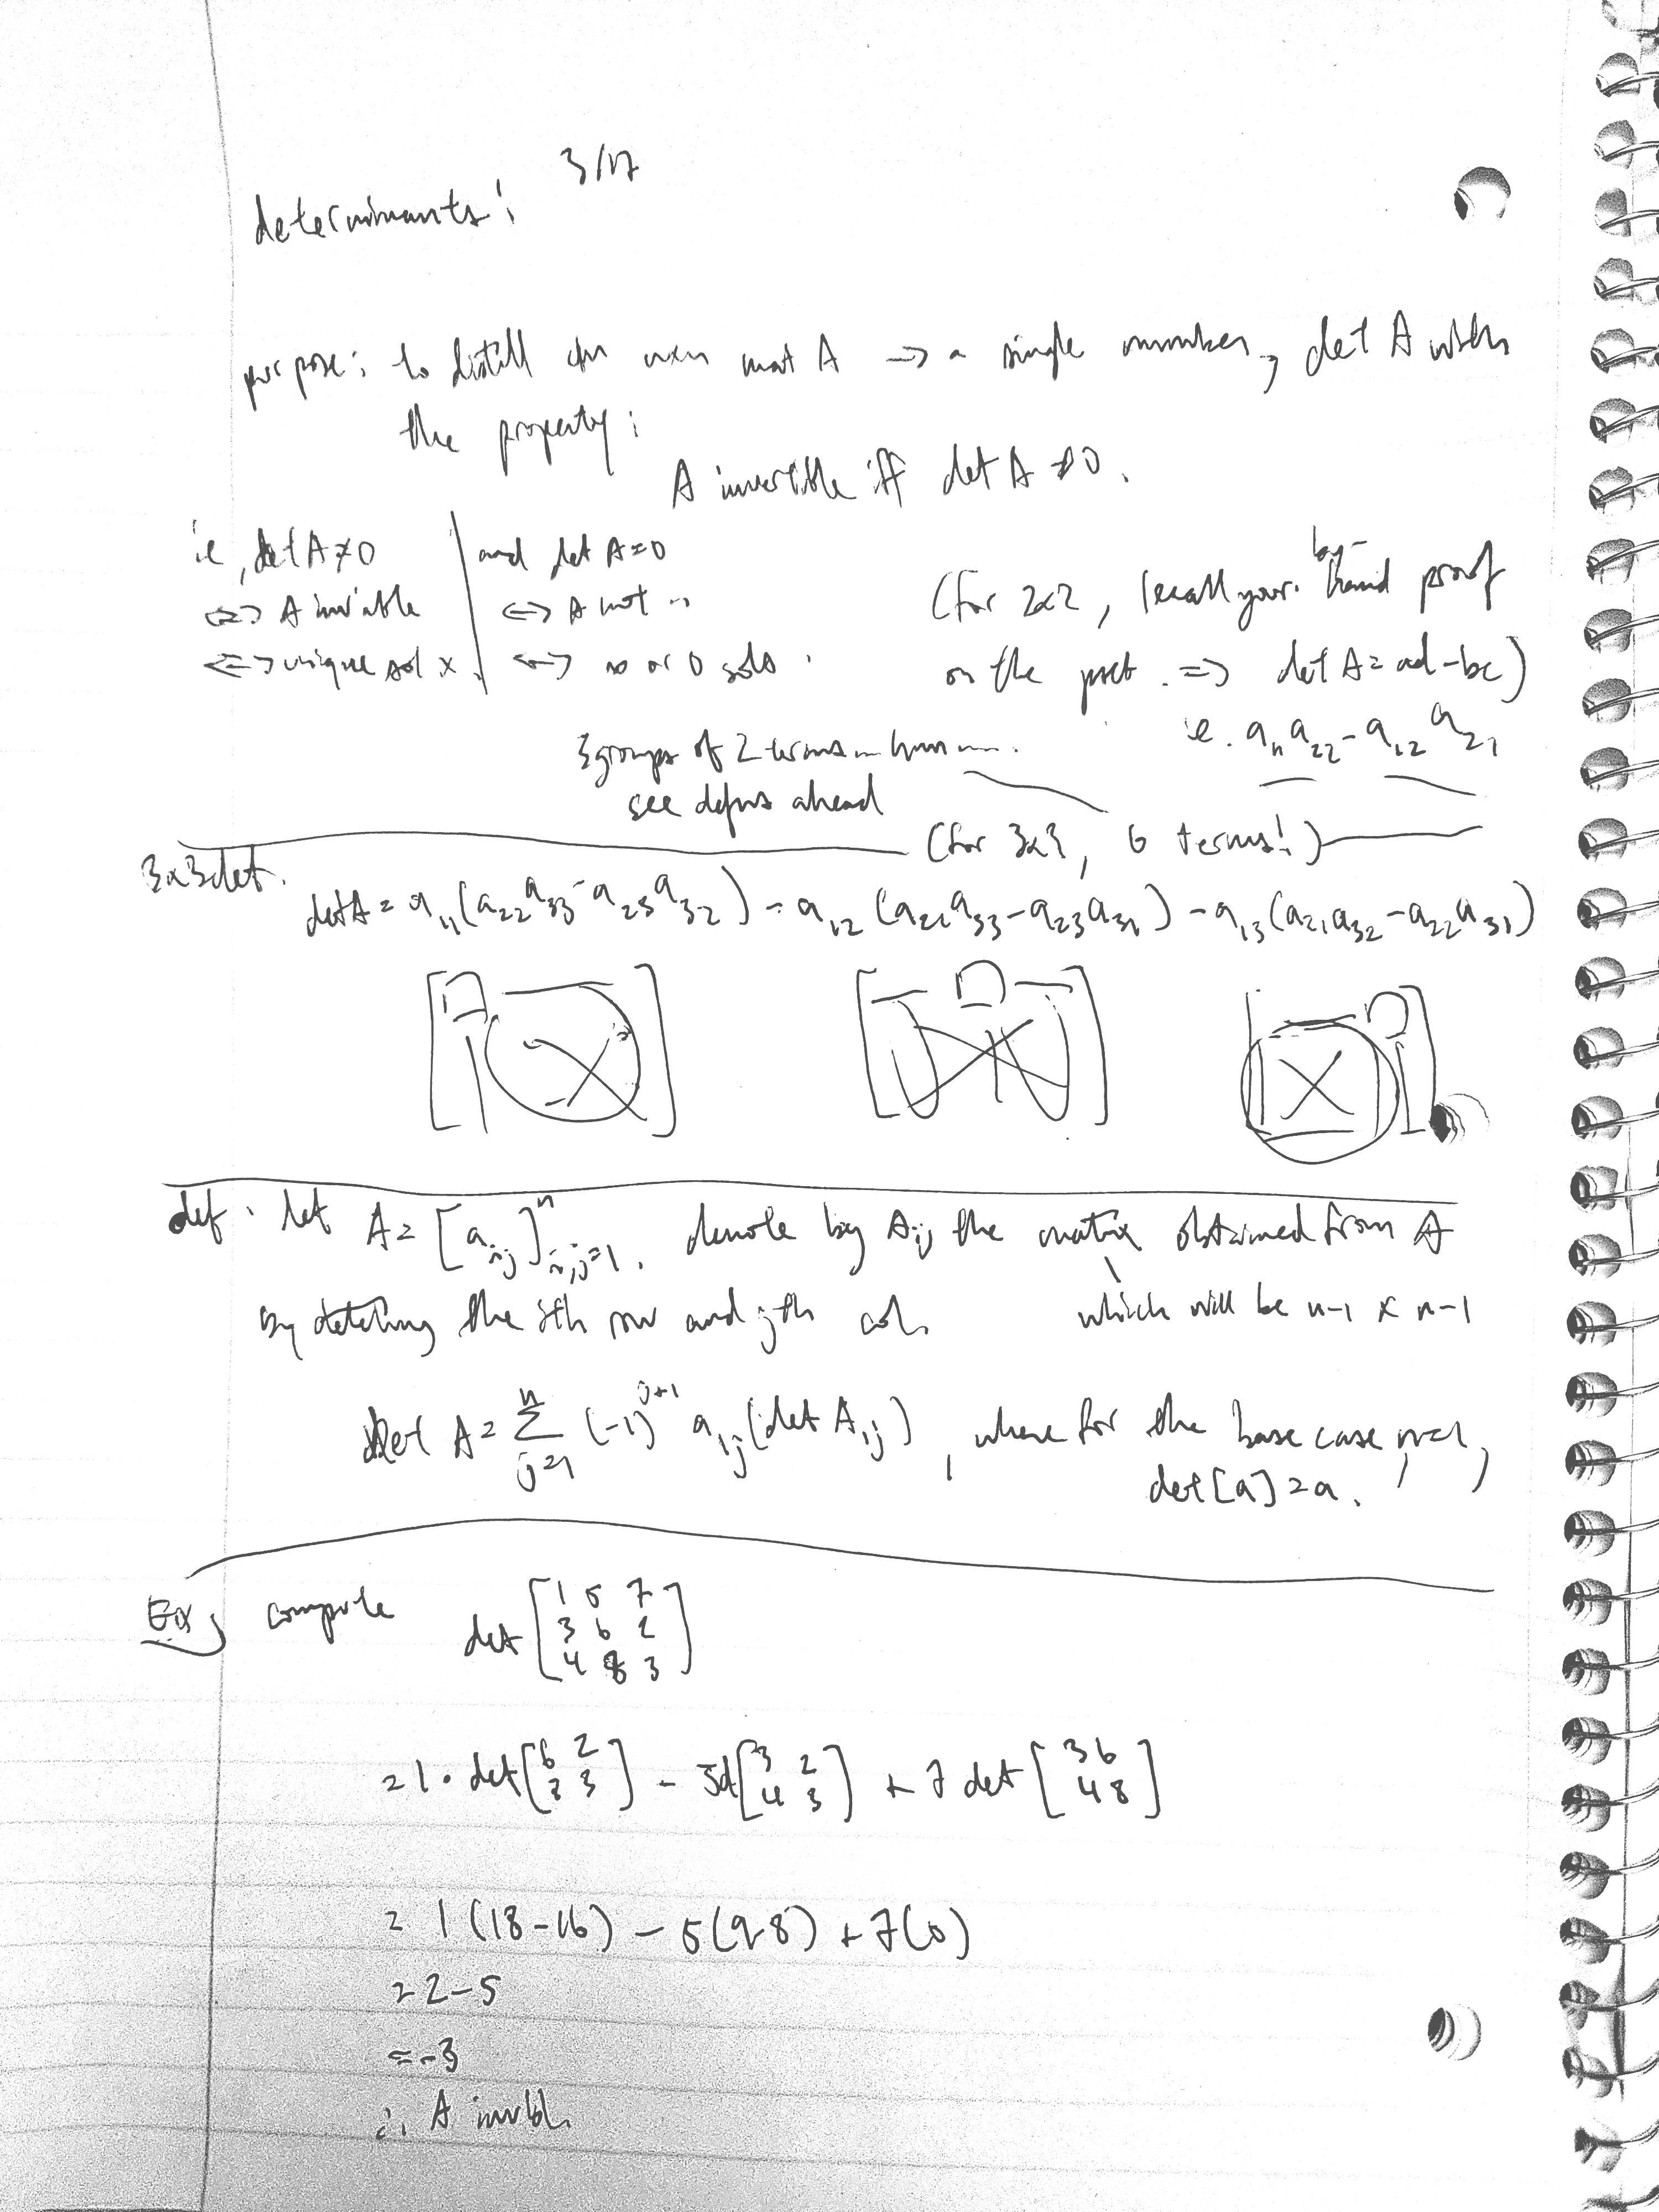 3/17
determinants:
purpose: to distill an nxn mat A → a single number, det A with
the property:
A invertible iff det A ≠ 0.
ie, det A ≠ 0 | and det A = 0
⟺ A inv'able | ⟺ A not "
⟺ unique sol x. | ⟺ ∞ or 0 sols.
(for 2x2, recall your by-hand proof
on the pset. ⇒ det A = ad - bc)
ie. a₁₁a₂₂ - a₁₂a₂₁
3 groups of 2 terms
see defns ahead
(for 3x3, 6 terms!)
3x3 det.
det A = a₁₁(a₂₂a₃₃ - a₂₃a₃₂) - a₁₂(a₂₁a₃₃ - a₂₃a₃₁) - a₁₃(a₂₁a₃₂ - a₂₂a₃₁)
def. let A = [a_ij]ⁿ_i,j=1. denote by A_ij the matrix obtained from A
by deleting the ith row and jth col.
which will be n-1 x n-1
det A = Σⁿ_j=1 (-1)^(j+1) a_1j (det A_1j), where for the base case n=1,
det [a] = a.
Ex, compute det [1 5 7
3 6 2
4 8 3]
= 1 · det [6 2; 8 3] - 5d [3 2; 4 3] + 7 det [3 6; 4 8]
= 1 (18-16) - 5(9-8) + 7(0)
= 2-5
= -3
∴ A invbl